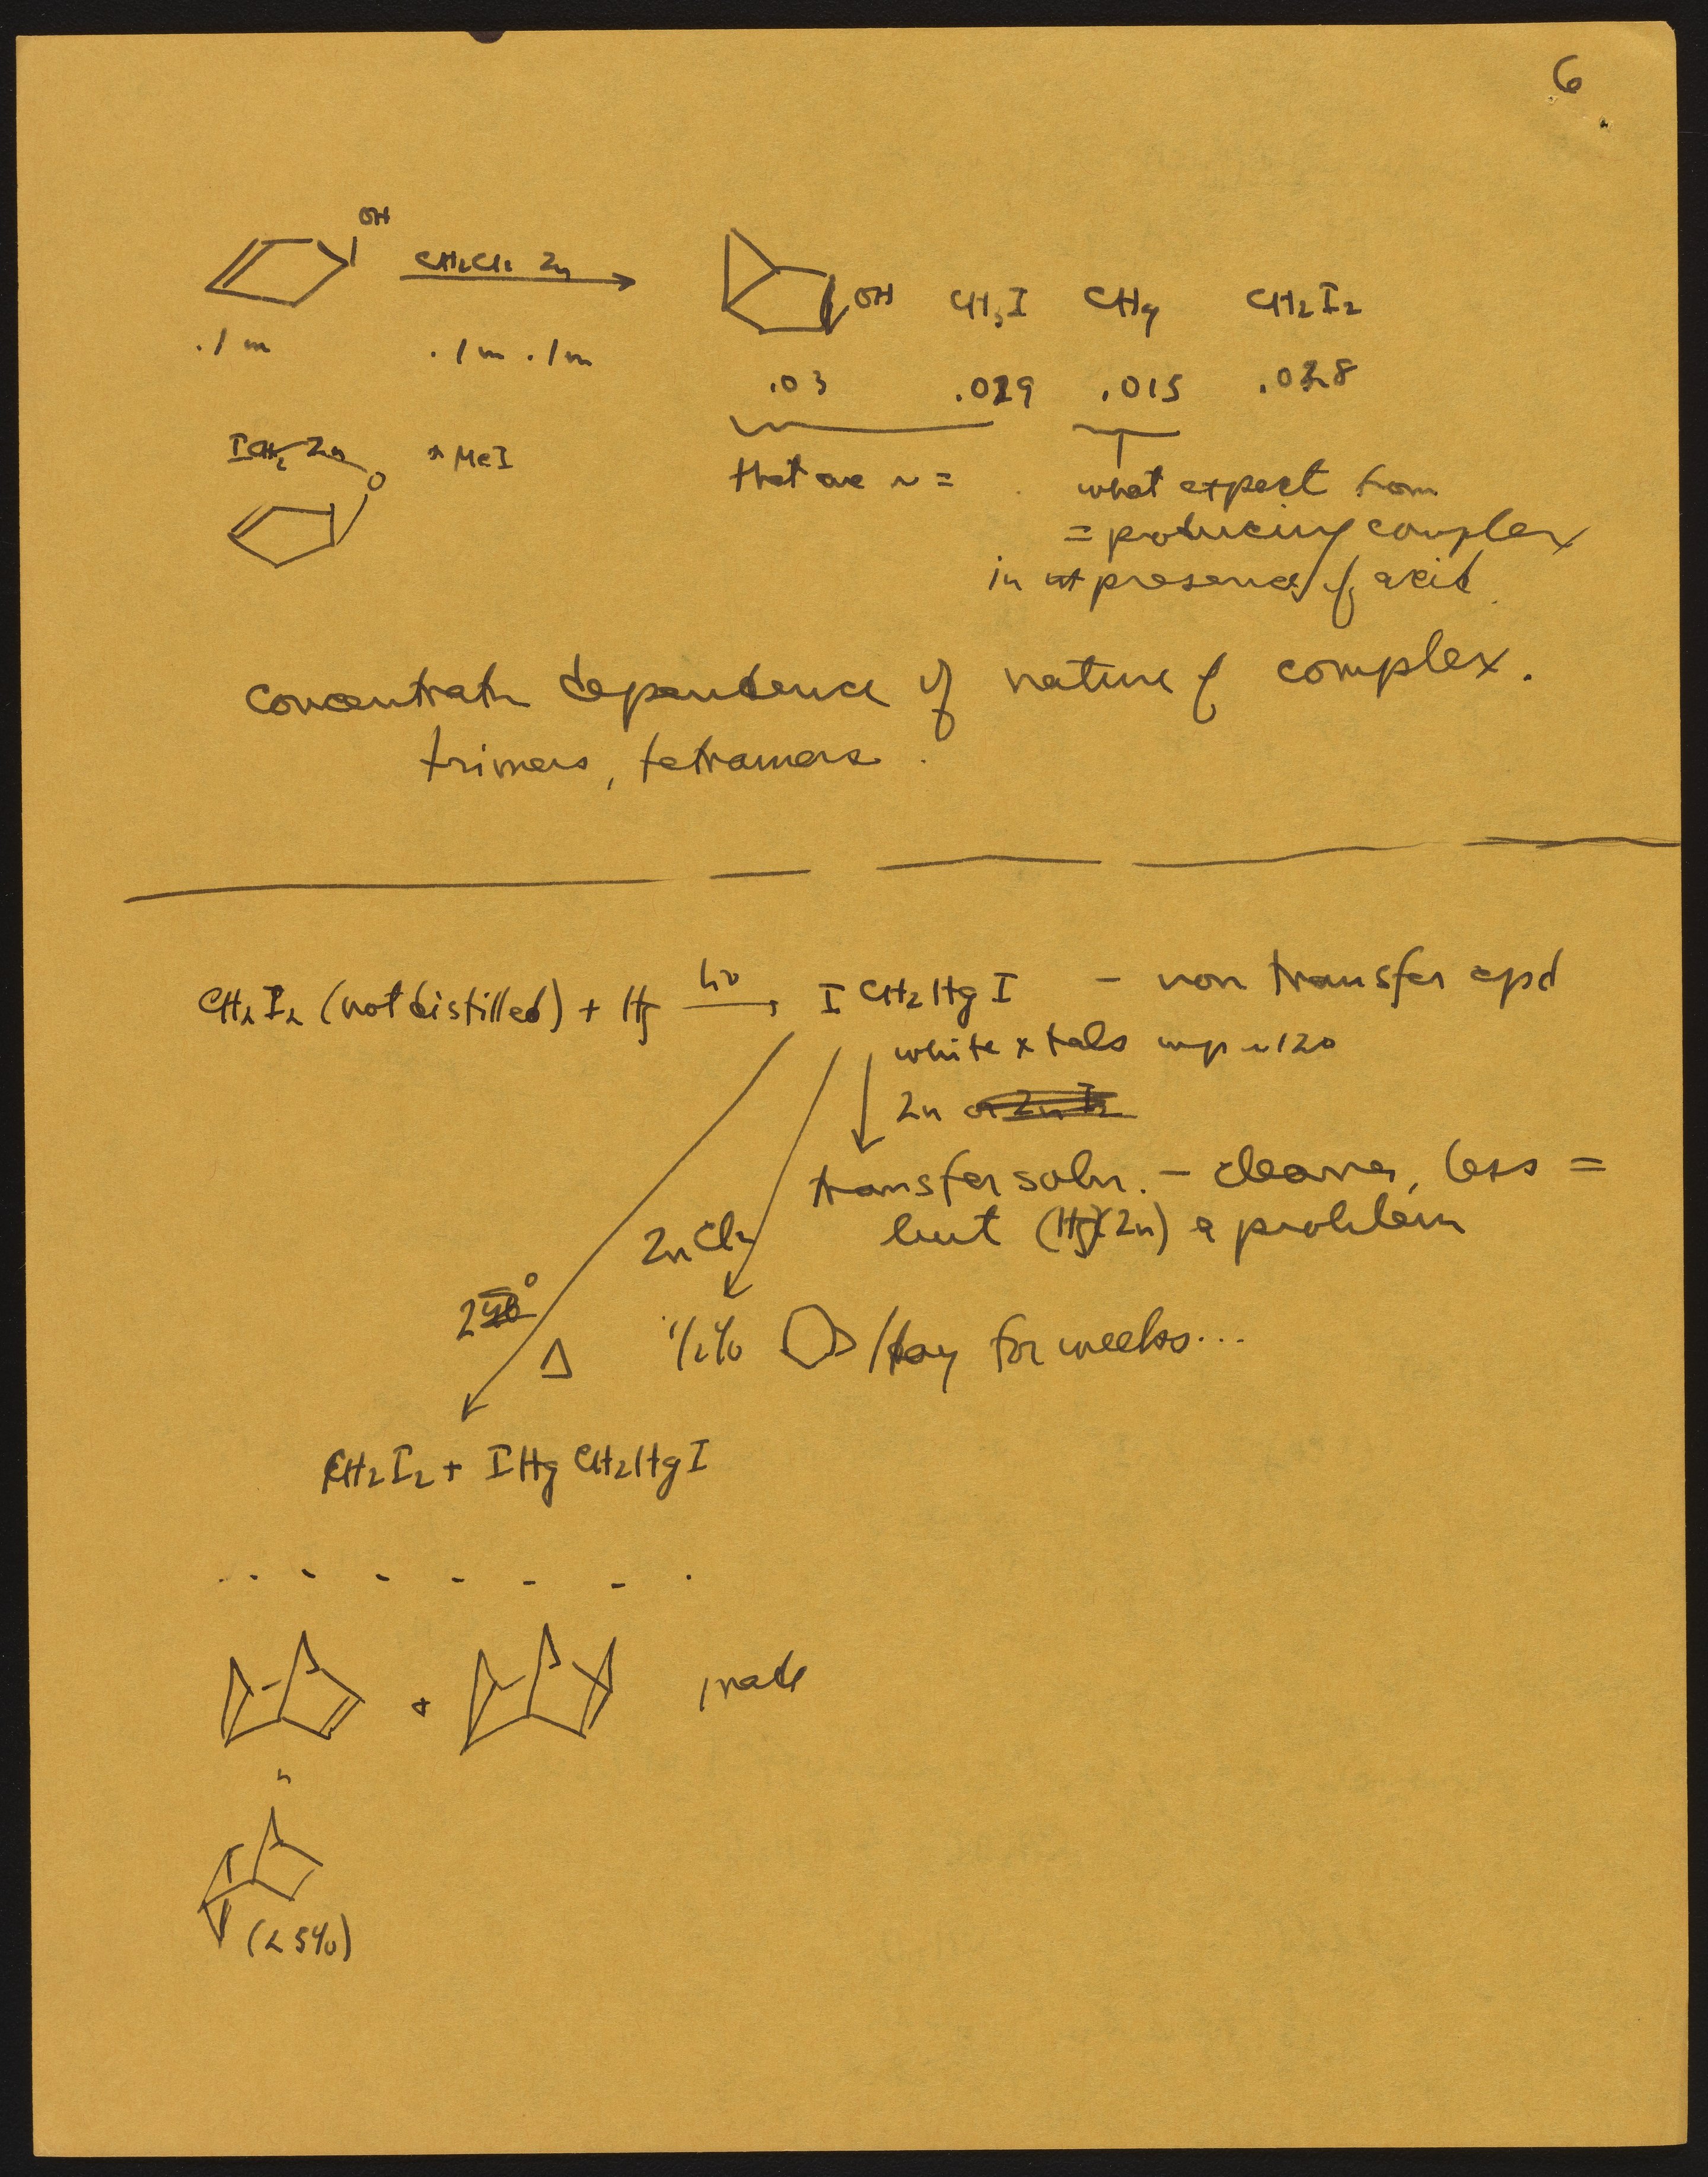 6
OH
CH2Cl2 Zn
OH CH3I CH4 CH2I2
.1 m .1 m .1 m
.03 .029 .015 .028
ICH2 Zn O + MeI
that are ~ = what expect from
= producing complex
in presence of acid
concentratn dependence of nature of complex.
trimers, tetramers.
CH2I2 (not distilled) + Hg hν ICH2HgI – non transfer cpd
white xtals mp ~120
Zn
transfer soln. – cleaner, less =
but (Hg)(Zn) a problem
ZnCl2
Δ
1/2% /day for weeks...
CH2I2 + IHgCH2HgI
+ made
(25%)